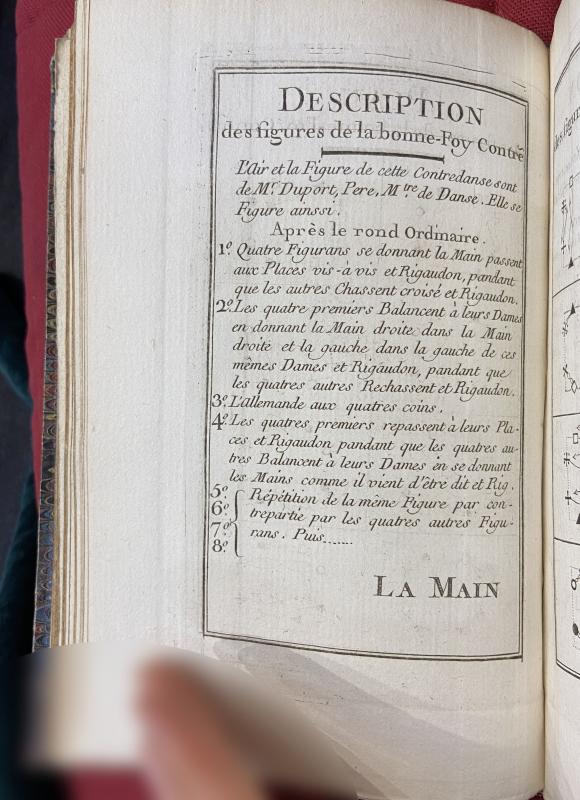 DESCRIPTION
des figures de la bonne-Foy Contrē
L'Air et la Figure de cette Contredanse sont
de Mr. Duport, Pere, Mtre de Danse. Elle se
Figure ainssi.
Après le rond Ordinaire.
1º. Quatre Figurans se donnant la Main passent
aux Places vis-à vis et Rigaudon, pandant
que les autres Chassent croisé et Rigaudon.
2º. Les quatre premiers Balancent à leurs Dames
en donnant la Main droite dans la Main
droite et la gauche dans la gauche de ces
mêmes Dames et Rigaudon, pandant que
les quatres autres Rechassent et Rigaudon.
3º. L'allemande aux quatres coins.
4º. Les quatres premiers repassent à leurs Pla-
ces et Rigaudon pandant que les quatres au-
tres Balancent à leurs Dames en se donnant
les Mains comme il vient d'être dit et Rig.
5º. Répétition de la même Figure par con-
6º. trepartie par les quatres autres Figu-
7º. rans. Puis.......
8º.
LA MAIN